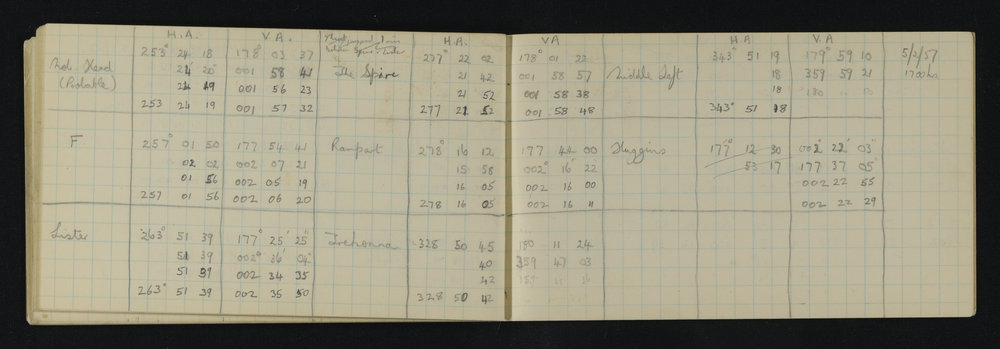 H.A. V.A. H.A. VA H.A. V.A.
253° 24 18 178° 03 37 277 22 02 178° 01 22 343° 51 19 179° 59 10 5/2/57
Nob. Head 24 20 001 58 41 The Spire 21 42 001 58 57 Middle Left 18 359 59 21 1700 hrs
(Probable) 24 19 001 56 23 21 52 001 58 38 18 180
253 24 19 001 57 32 277 21 52 001 58 48 343° 51 18
F 257° 01 50 177 54 41 Rampart 278° 16 12 177 44 00 Huggins 177° 12 30 002° 22' 03"
02 02 002 07 21 15 58 002° 16' 22 53 17 177 37 05
01 56 002 05 19 16 05 002 16 00 002 22 55
257 01 56 002 06 20 278 16 05 002 16 11 002 22 29
Lister 263° 51 39 177° 25' 25" 328 50 45 180 11 24
51 39 002° 36' 04" 40 359 47 03
51 39 002 34 35 42
263° 51 39 002 35 50 328 50 42